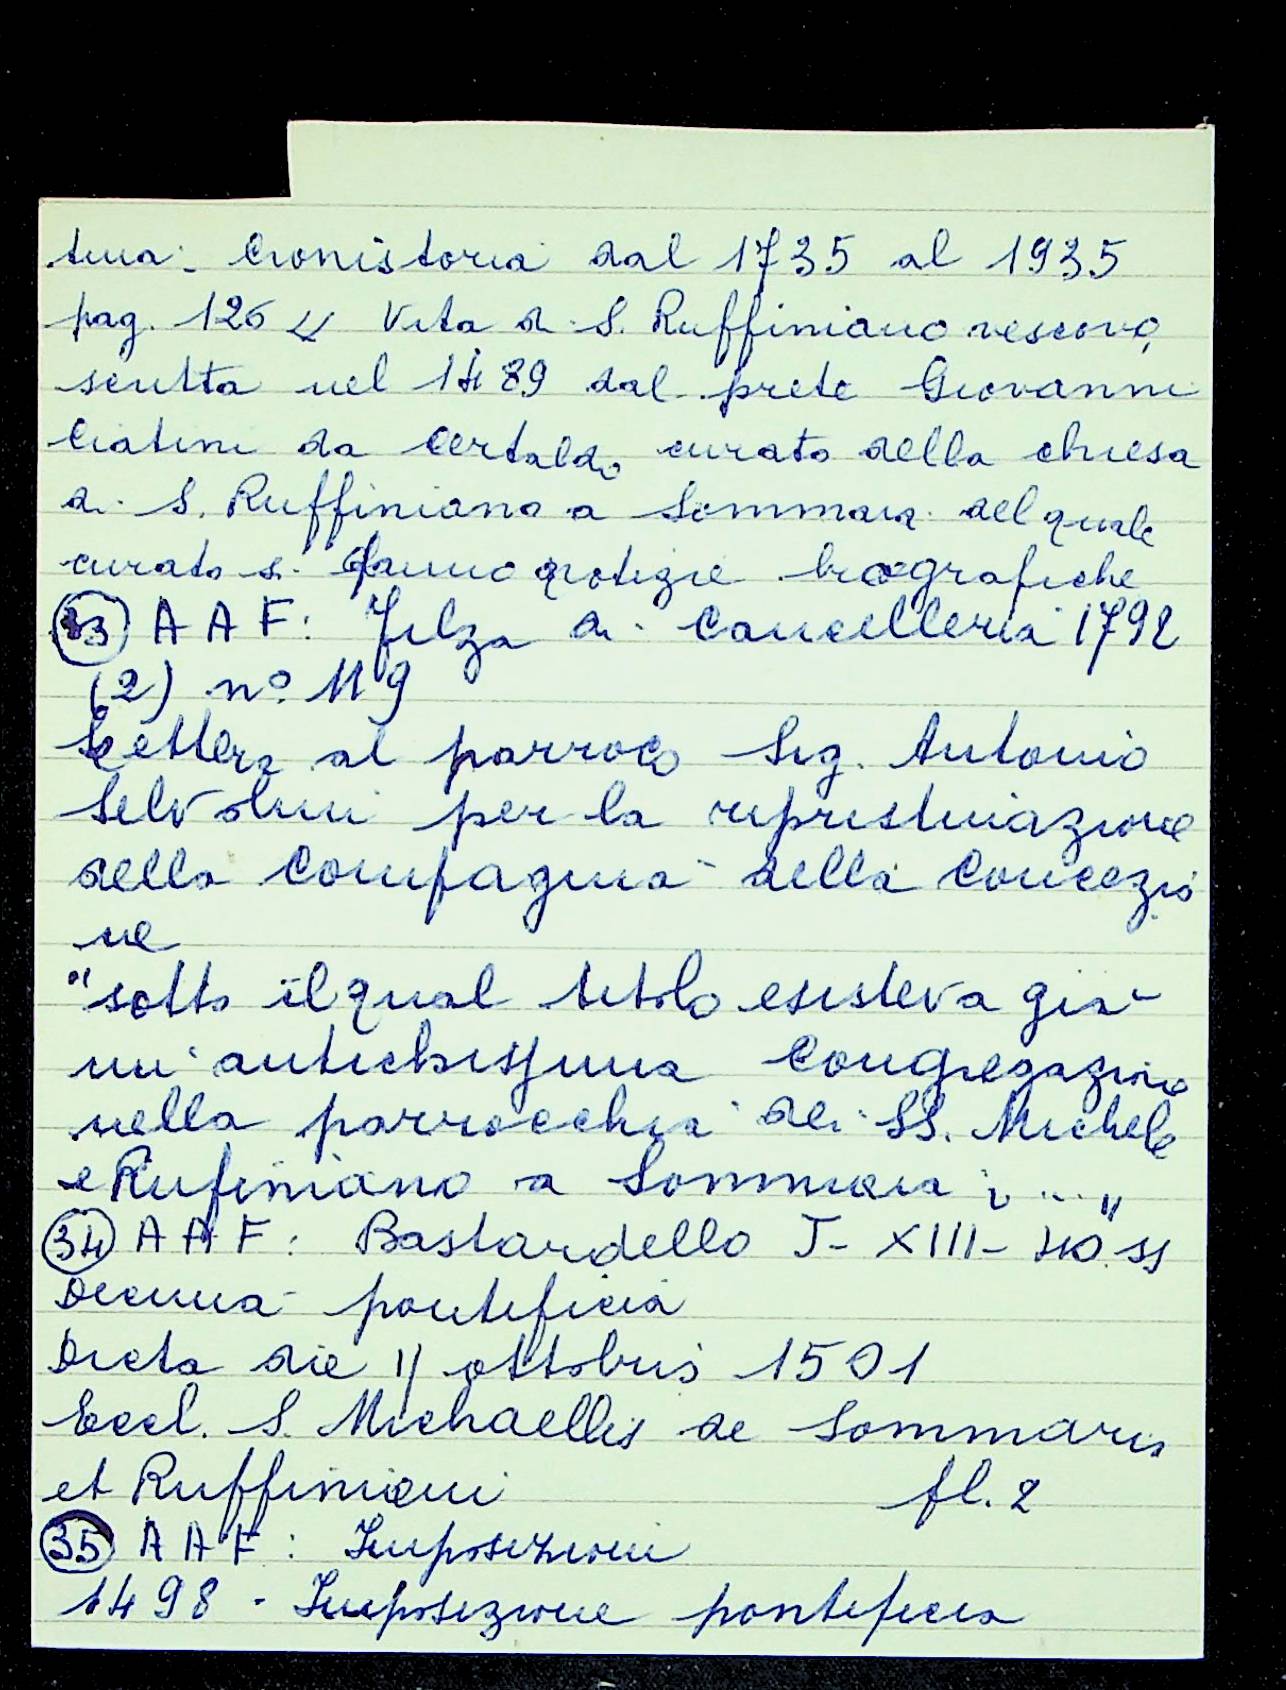 tina. Cronistoria dal 1735 al 1935
pag. 126 " Vita di S. Ruffiniano vescovo,
scritta nel 1489 dal prete Giovanni
Ciatini da Certaldo curato della chiesa
di S. Ruffiniano a Sommaia del quale
curato si danno notizie biografiche
33 A A F: Filza di Cancelleria 1792
(2) n° 119
Lettera al parroco Sig. Antonio
Selvolini per la ripristinazione
della Compagnia della Concezio
ne
"sotto il qual titolo esisteva già
un'antichissima Congregazione
nella parrocchia dei SS. Michele
e Rufiniano a Sommaia; ..."
34 A A F: Bastardello J - XIII - 40.
Decima pontificia
Dicta die 11 ottobris 1501
Eccl. S. Michaellis de Sommaris
et Ruffiniani fl. 2
35 A A F: Imposizioni
1498 - Imposizione pontificia